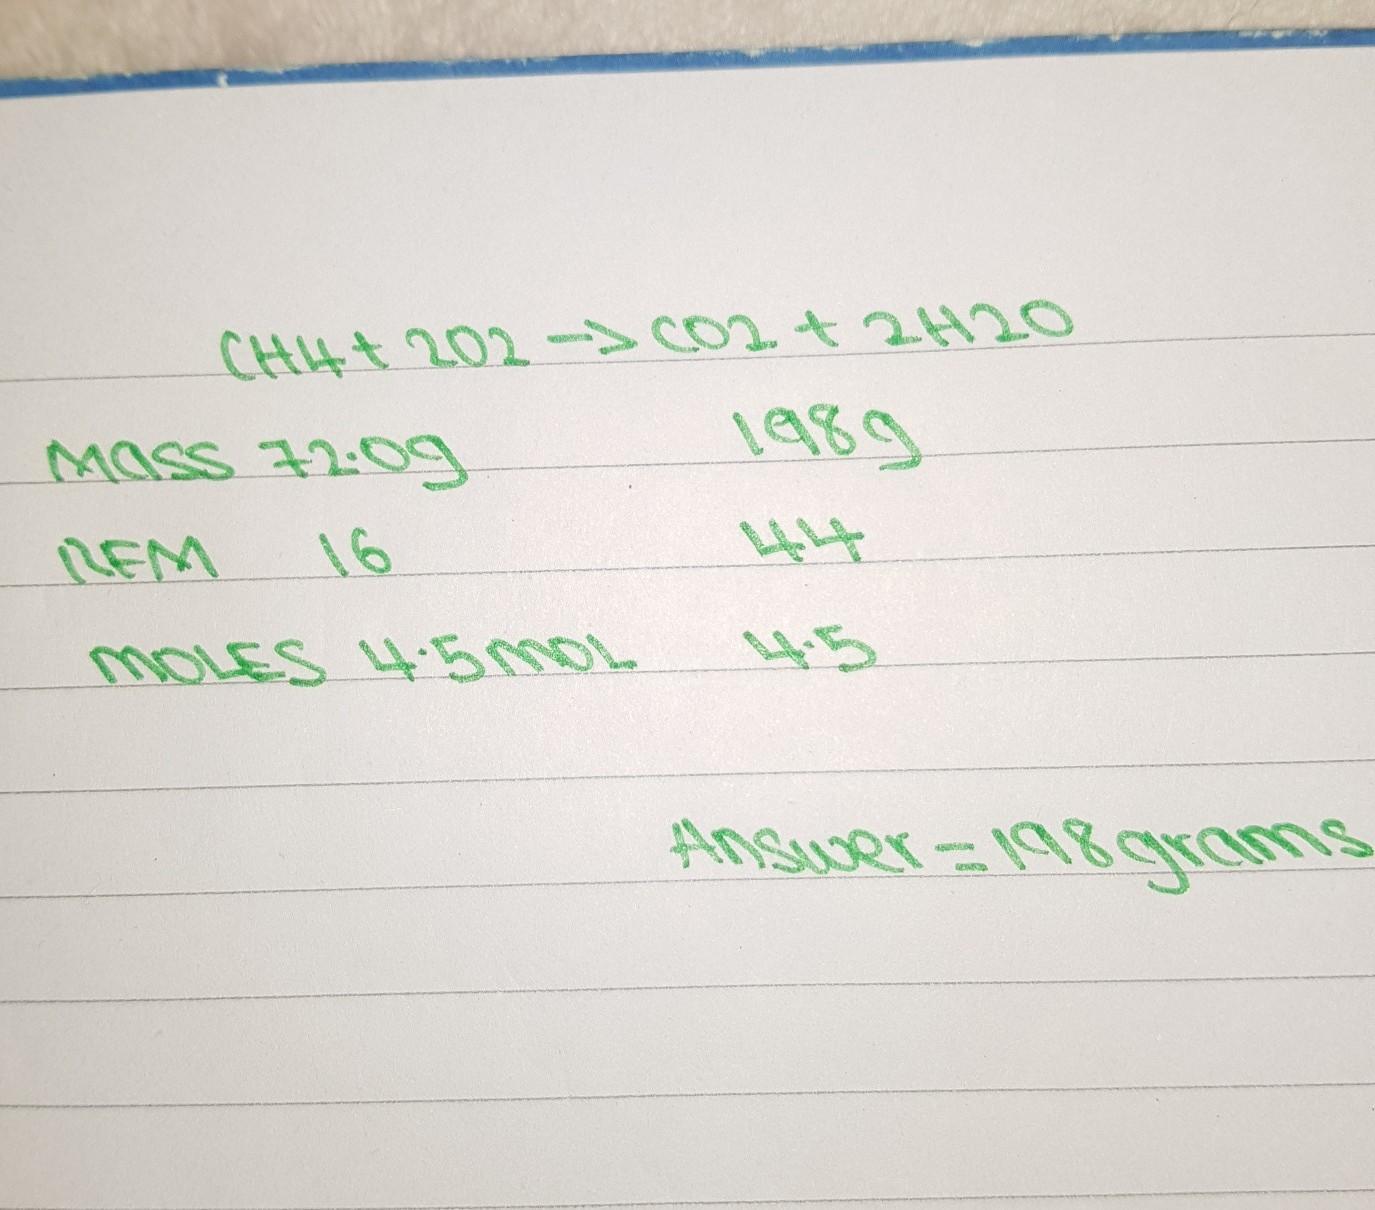 CH4 + 2O2 -> CO2 + 2H2O
MASS 72.0g 198g
RFM 16 44
MOLES 4.5MOL 4.5
Answer = 198 grams